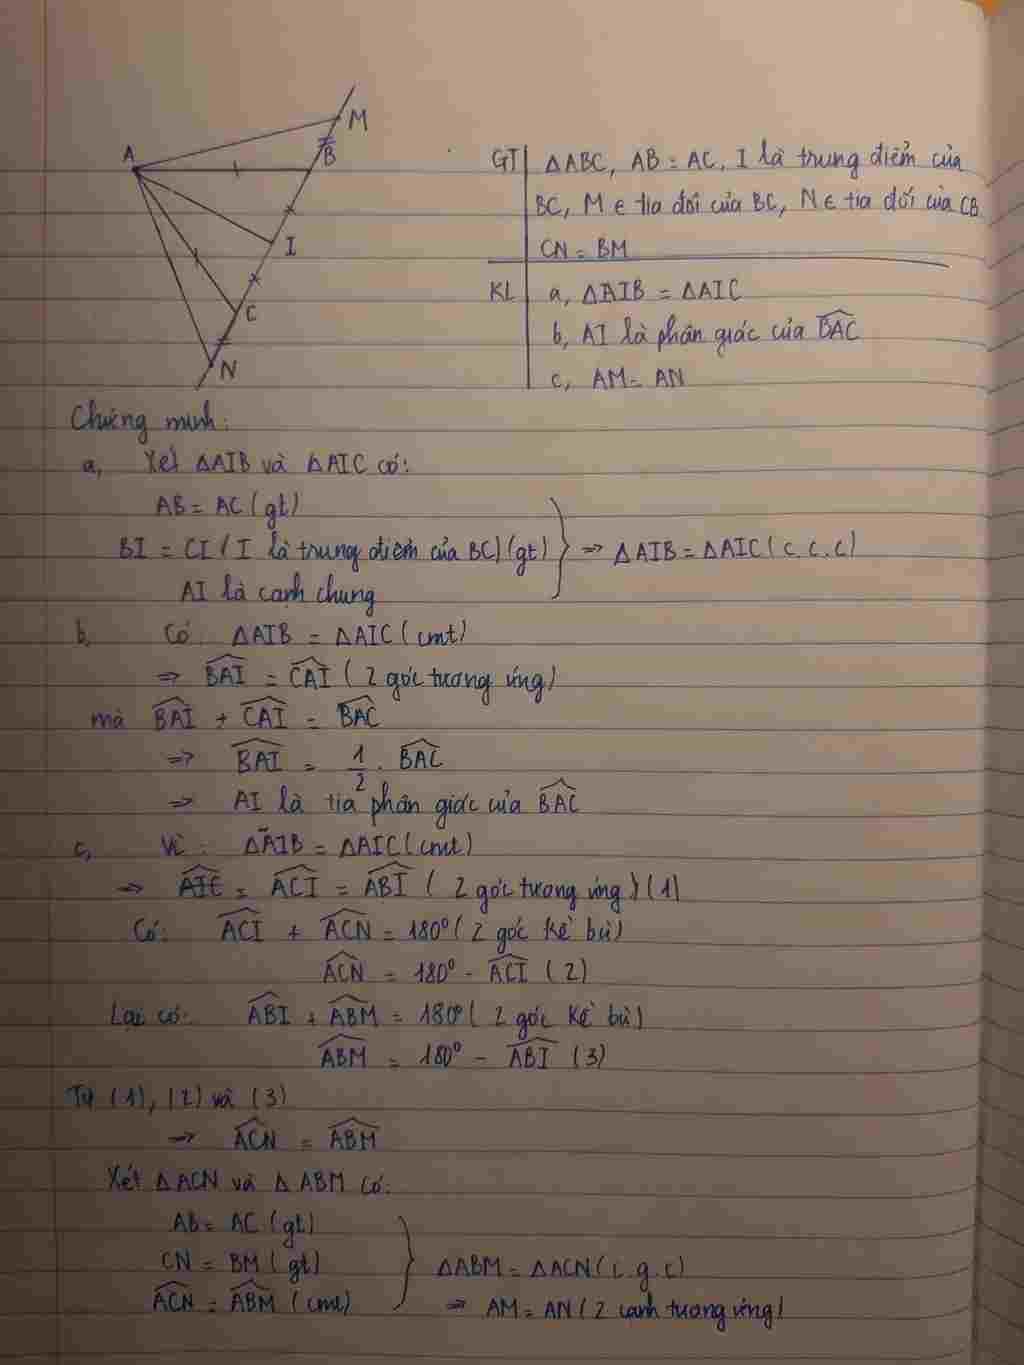 M
A
B
I
C
N
GT ΔABC, AB = AC, I là trung điểm của
BC, M ∈ tia đối của BC, N ∈ tia đối của CB
CN = BM
KL a, ΔAIB = ΔAIC
b, AI là phân giác của \widehat{BAC}
c, AM = AN
Chứng minh:
a, Xét ΔAIB và ΔAIC có:
AB = AC (gt)
BI = CI (I là trung điểm của BC) (gt) } => ΔAIB = ΔAIC (c.c.c)
AI là cạnh chung
b, Có: ΔAIB = ΔAIC (cmt)
=> \widehat{BAI} = \widehat{CAI} (2 góc tương ứng)
mà \widehat{BAI} + \widehat{CAI} = \widehat{BAC}
=> \widehat{BAI} = 1/2 . \widehat{BAC}
=> AI là tia phân giác của \widehat{BAC}
c, Vì: ΔAIB = ΔAIC (cmt)
=> \widehat{AIC} = \widehat{ACI} = \widehat{ABI} (2 góc tương ứng) (1)
Có: \widehat{ACI} + \widehat{ACN} = 180° (2 góc kề bù)
\widehat{ACN} = 180° - \widehat{ACI} (2)
Lại có: \widehat{ABI} + \widehat{ABM} = 180° (2 góc kề bù)
\widehat{ABM} = 180° - \widehat{ABI} (3)
Từ (1), (2) và (3)
=> \widehat{ACN} = \widehat{ABM}
Xét ΔACN và ΔABM có:
AB = AC (gt)
CN = BM (gt) } ΔABM = ΔACN (c.g.c)
\widehat{ACN} = \widehat{ABM} (cmt) => AM = AN (2 cạnh tương ứng)